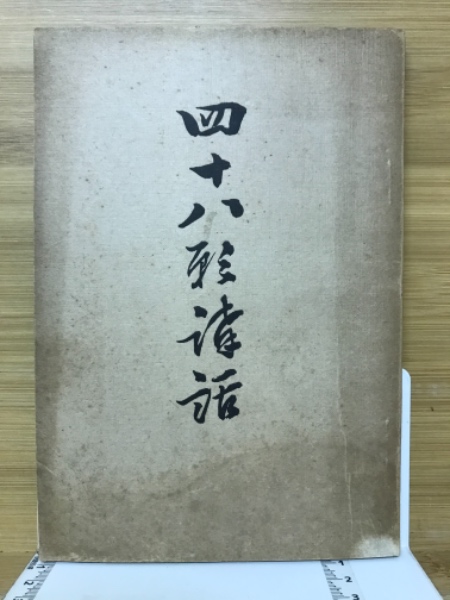 四十八願講話